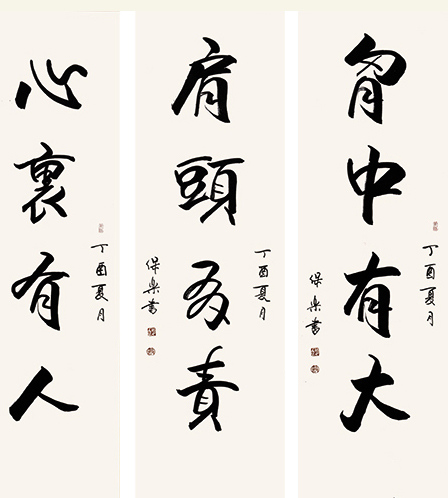 丁酉夏月
胷中有大
保樂書
丁酉夏月
肩頭有責
保樂書
丁酉夏月
心裏有人